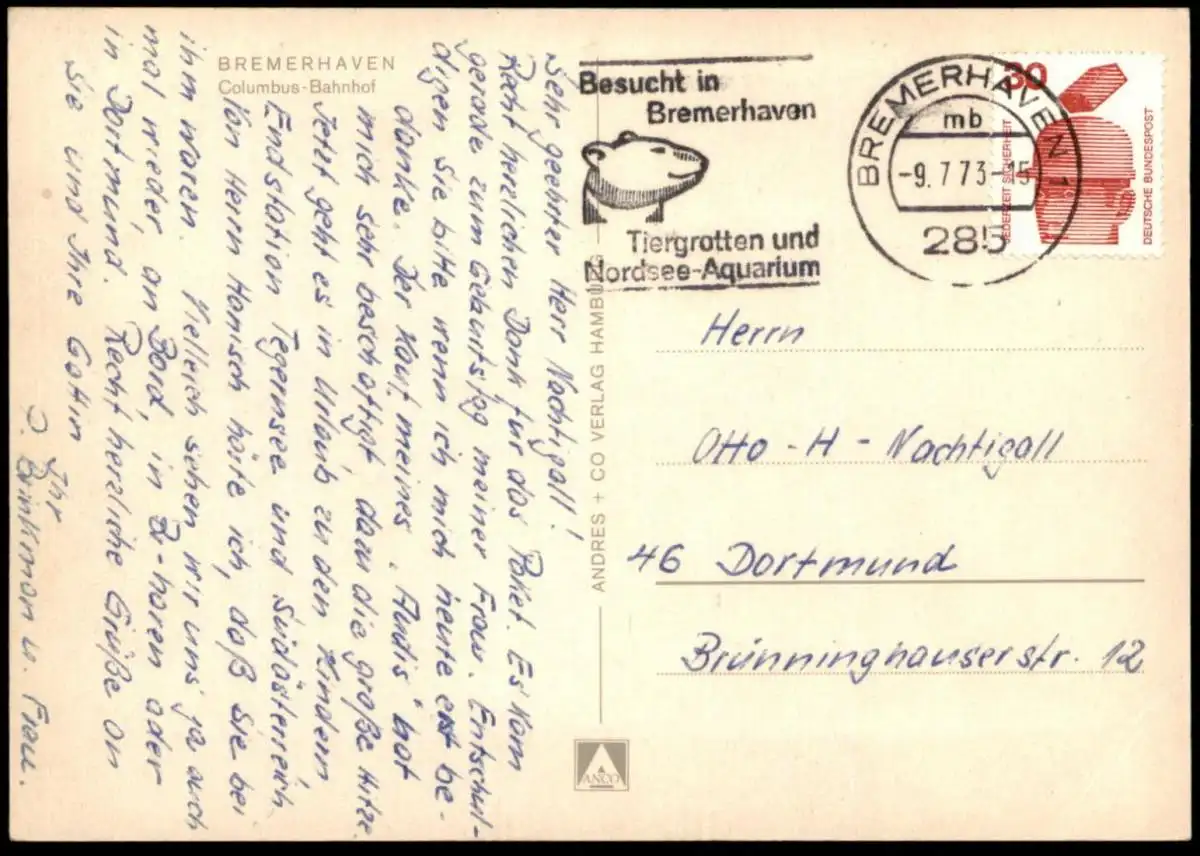 BREMERHAVEN
Columbus-Bahnhof
Sehr geehrter Herr Nachtigall!
Recht herzlichen Dank für das Paket. Es kam
gerade zum Geburtstag meiner Frau. Entschul-
digen Sie bitte wenn ich mich heute erst be-
danke. Der Kauf meines "Audis" hat
mich sehr beschäftigt, dazu die große Hitze.
Jetzt geht es in Urlaub zu den Kindern
Endstation Tegernsee und Südösterreich.
Von Herrn Hanisch hörte ich, daß Sie bei
ihm waren. Vielleich sehen wir uns ja auch
mal wieder, an Bord, in B-haven oder
in Dortmund. Recht herzliche Grüße an
Sie und Ihre Gattin
Ihr
Brinkman u. Frau.
ANDRES + CO VERLAG HAMBURG
ANCO
Besucht in
Bremerhaven
Tiergrotten und
Nordsee-Aquarium
BREMERHAVEN 1
mb
-9.7.73-15
285
30
JEDERZEIT SICHERHEIT
DEUTSCHE BUNDESPOST
Herrn
Otto-H-Nachtigall
46 Dortmund
Brünninghauserstr. 12